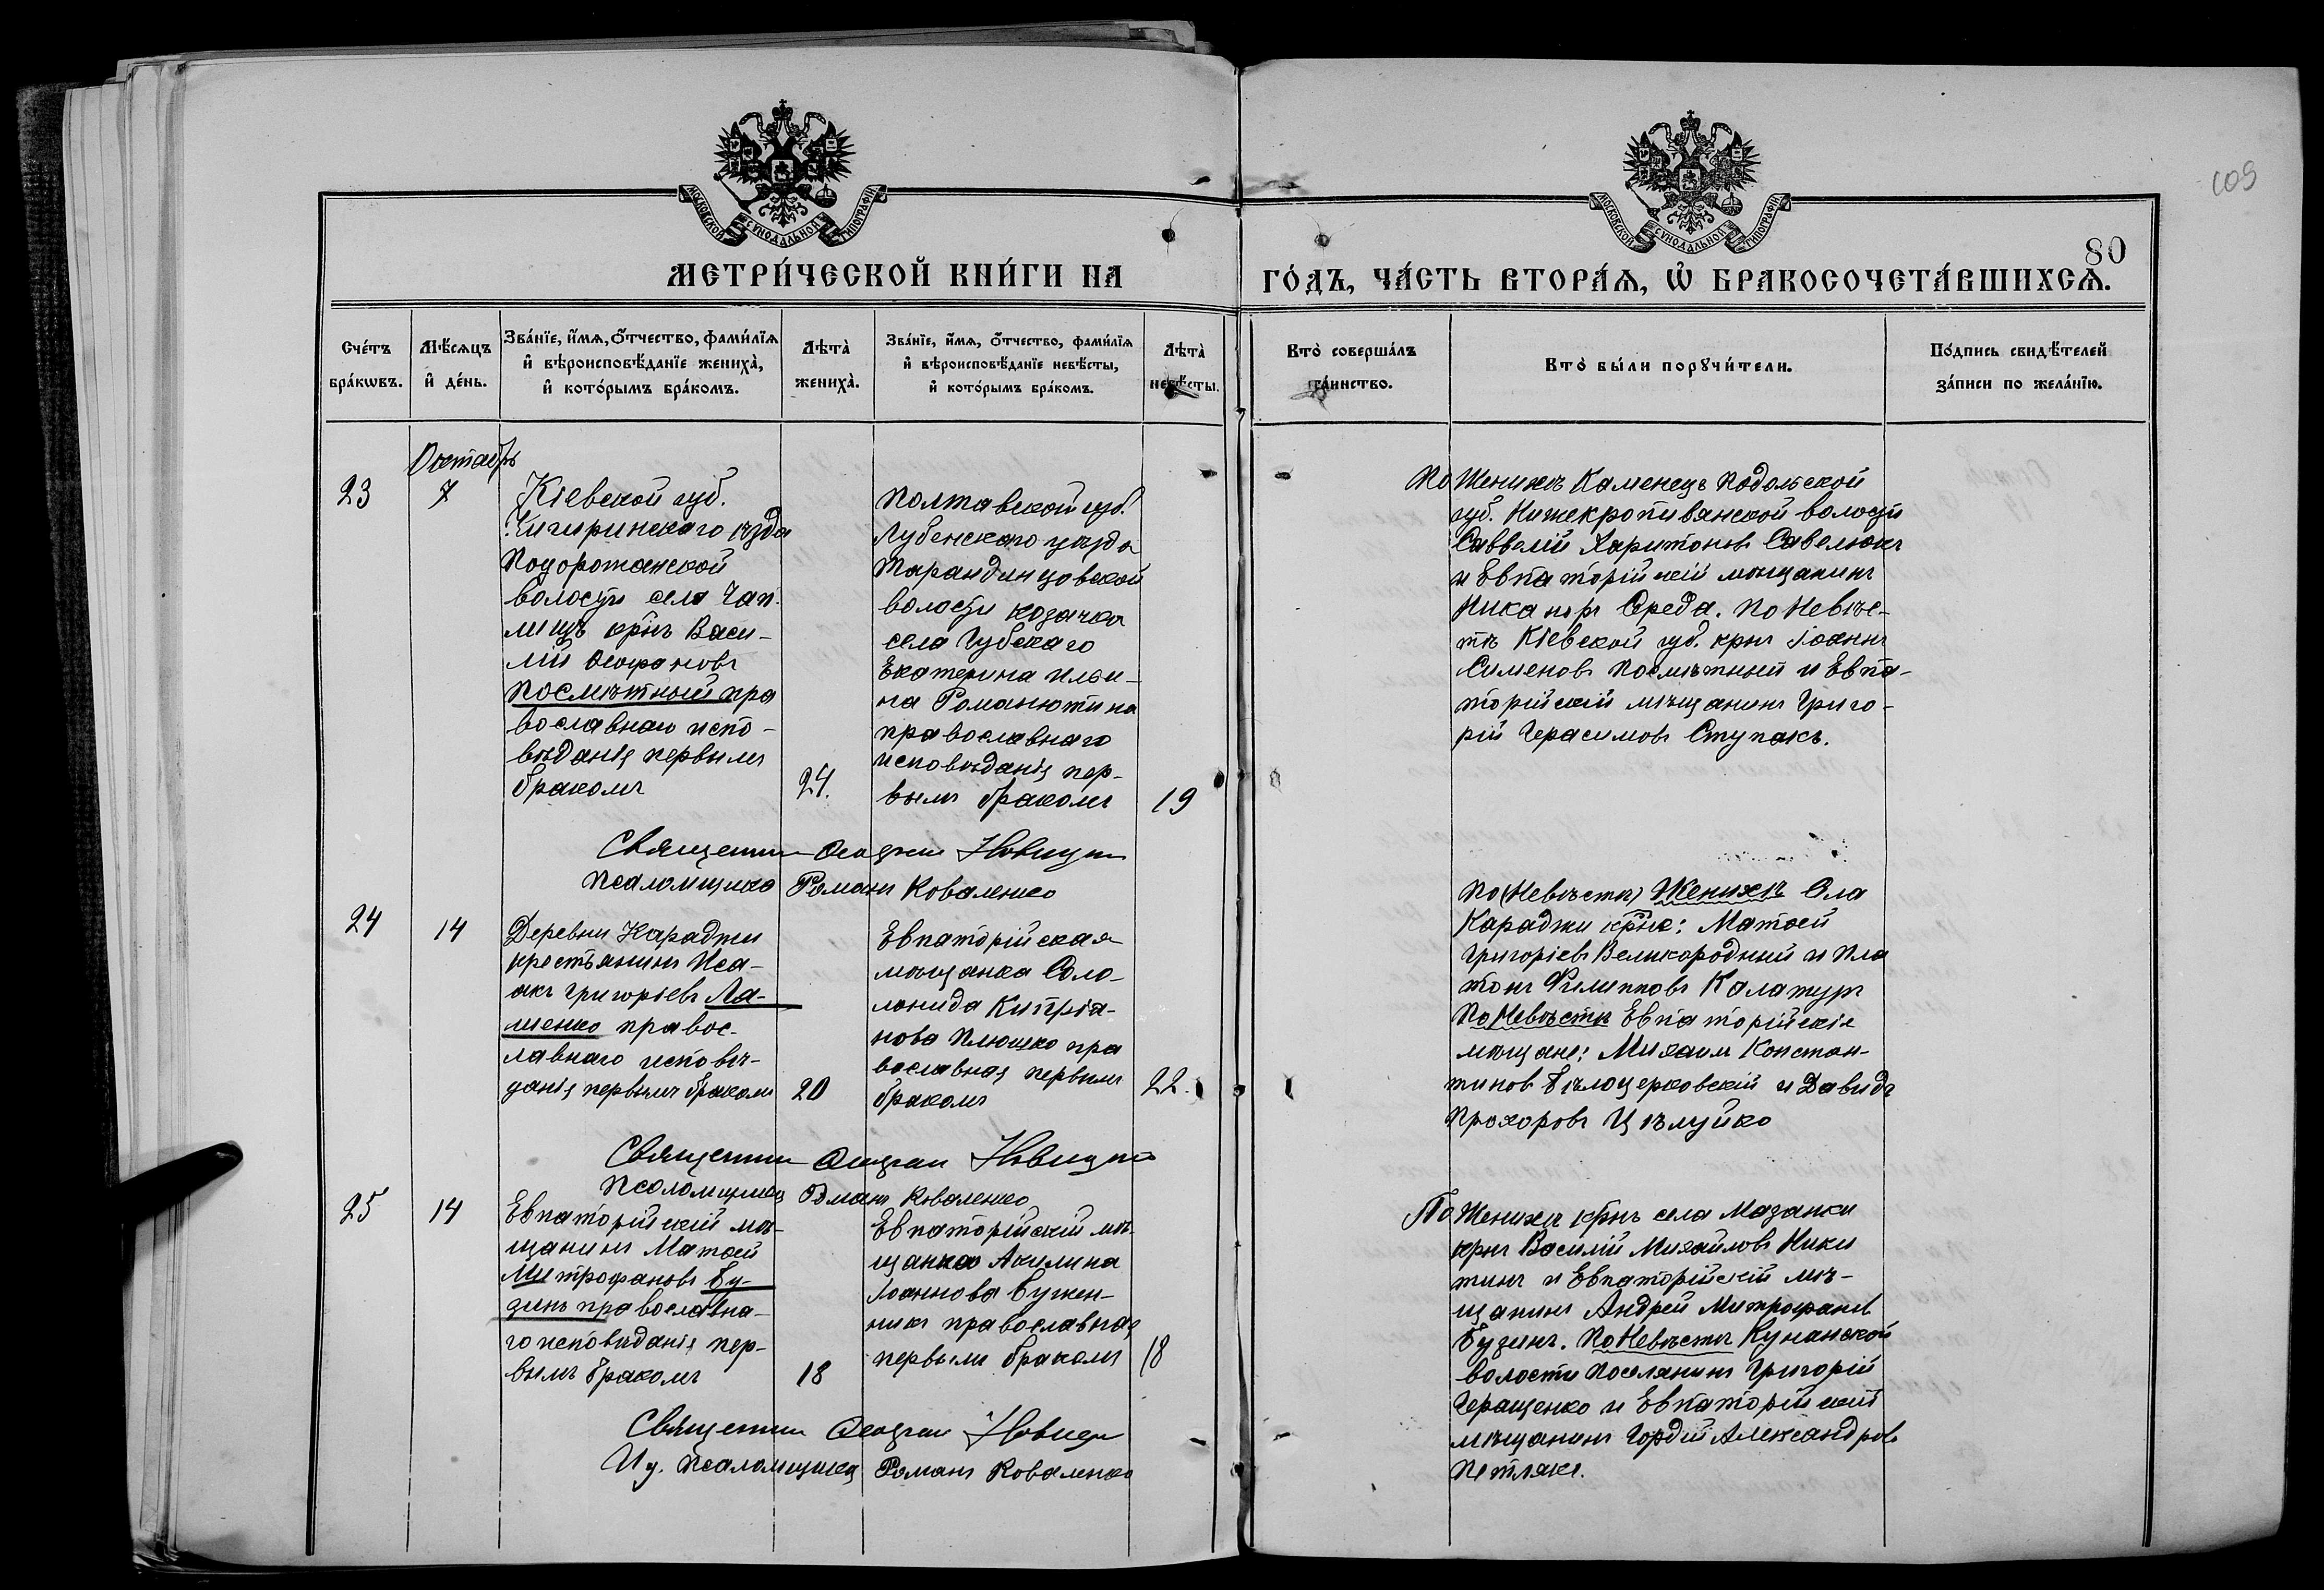 МОСКОВСКОЙ СѴНОДАЛЬНОЙ ТИПОГРАФІИ
МЕТРИ́ЧЕСКОЙ КНИ́ГИ НА
Сче́тъ
бра́кѡвъ.
Мѣ́сяцъ
и҆ де́нь.
Зва́нїе, и҆́мѧ, ѻ҆́тчество, фами́лїѧ
и҆ вѣроисповѣ́данїе жениха̀,
и҆ кото́рымъ бра́комъ.
Лѣта̀
жениха̀.
Зва́нїе, и҆́мѧ, ѻ҆́тчество, фами́лїѧ
и҆ вѣроисповѣ́данїе невѣ́сты,
и҆ кото́рымъ бра́комъ.
Лѣта̀
невѣ́сты.
Октябрь
23
7
Кіевской губ.
Чигиринскаго уѣзда
Подорожанской
волости села Чап
лищъ крнъ Васи-
лій Ѳеофановъ
Посмѣтный пра
вославнаго испо-
вѣданія первымъ
бракомъ
24.
Полтавской губ.
Лубенскаго уѣзда
Тарандинцовской
волости козачка
села Губскаго
Екатерина Ильи-
на Романютина
православнаго
исповѣданія пер-
вымъ бракомъ
19
Священник Новицкій
Псаломщикъ Романъ Коваленко
24
14
Деревни Караджи
крестьянинъ Иса-
акъ Григоріевъ Ля-
шенко правос-
лавнаго исповѣ-
данія первымъ бракомъ
20
Евпаторійская
мѣщанка Соло-
монида Кипріа-
нова Плюшко пра
вославная первымъ
бракомъ
22.
Священник Новицкій
Псаломщикъ Романъ Коваленко
25
14
Евпаторійскій мѣ-
щанинъ Матѳей
Митрофановъ Бу-
зинъ православна-
го исповѣданія пер-
вымъ бракомъ
18
Евпаторійскій мѣ-
щанка Акилина
Іоаннова Бужен-
никъ православная
первымъ бракомъ
18
Священник Новицкій
И д. Псаломщика Романъ Коваленко
109
МОСКОВСКОЙ СѴНОДАЛЬНОЙ ТИПОГРАФІИ
80
ГО́ДЪ, ЧА́СТЬ ВТОРА́Ѧ, Ѡ҆ БРАКОСОЧЕТА́ВШИХСѦ.
Кто̀ соверша́лъ
та́инство.
Кто̀ бы́ли порꙋчи́тели.
По́дпись свидѣ́телей
за́писи по жела́нїю.
По Женихѣ Каменецъ Подольской
губ. Нижекропивянской волости
Саввелій Харитоновъ Савелюкъ
и Евпаторійскій мѣщанинъ
Никаноръ Середа. По Невѣс-
тѣ Кіевской губ. крнъ Іоаннъ
Сименовъ Посмѣтный и Евпа-
торійскій мѣщанинъ Григо-
рій Герасимовъ Ступакъ.
По (Невѣсти) Женихѣ Села
Караджи крне: Матѳей
Григоріевъ Великородный и Пла
тонъ Филипповъ Калатуръ
По Невѣстѣ Евпаторійскіе
мѣщане: Михаилъ Констан-
тинов Бѣлоцерковскій и Давидъ
Прохоровъ Цѣлуйко
По Женихѣ крнъ села Мазанки
крнъ Василій Михайловъ Ники
тинъ и Евпаторійскій мѣ-
щанинъ Андрей Митрофанов
Бузинъ. По Невѣстѣ Кунанской
волости поселянинъ Григорій
Геращенко и Евпаторійскій
мѣщанинъ Гордій Александров
Петлякъ.